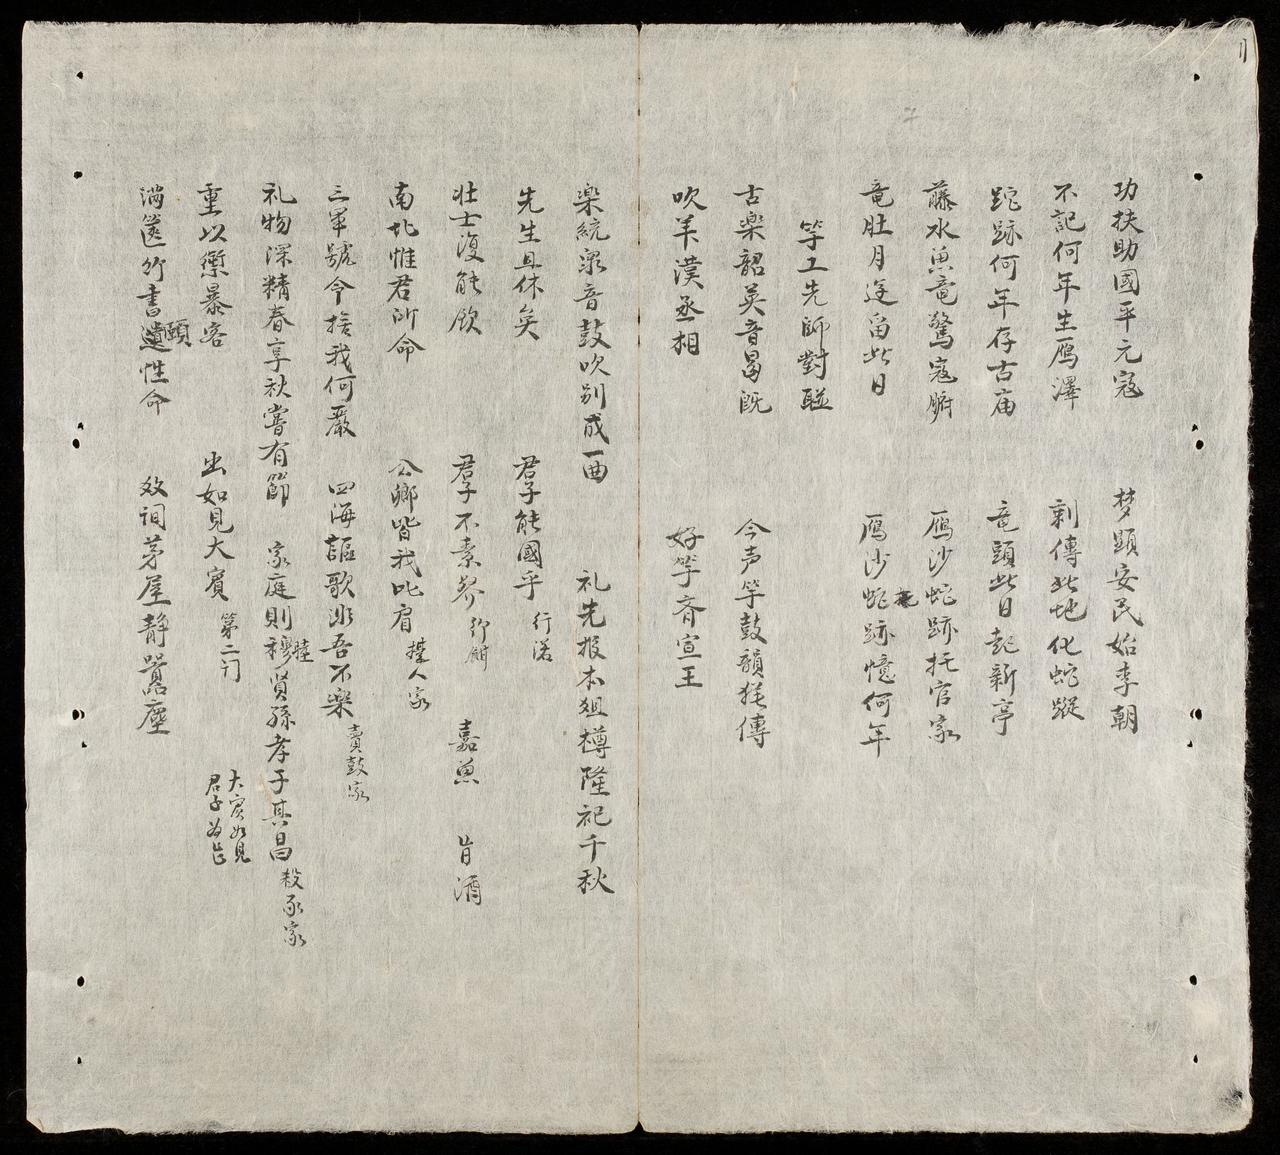 功扶助國平元寇 梦顕安民始李朝
不記何年生鴈澤 剩傳此地化蛇蹤
蛇跡何年存古庙 竜頭此日起新亭
藤水魚竜驚寇 鴈沙蛇跡托官家
竜肚月逆留此日 鴈沙蛇跡憶何年
竽工先師對聨
古楽韶英音曷既 今声竽鼓韻猶傳
吹羊漢丞相 好竽斉宣王
楽統衆音鼓吹别成一曲 礼先报本俎樽隆祀千秋
先生且休矣 君子能國乎 行活
壮士復能飲 君子不素餐 行 嘉魚 旨酒
南北惟君所命 公卿皆我比肩 人家
三軍號令捨我何嚴 四海謳歌涉吾不楽 賣鼓家
礼物深精春享秋嘗有節 家庭則穆睦賢孫孝子其昌 殺豕家
重以禦暴客 出如見大賓 第二门 大賓如見 君子為
满篋竹書遺頤性命 双祠茅屋静囂塵